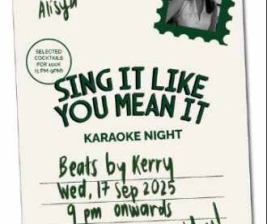 Alisya
SELECTED
COCKTAILS
SING IT LIKE
YOU MEAN IT
KARAOKE NIGHT
Beats by Kerry
Wed, 17 Sep 2025
9 pm onwards